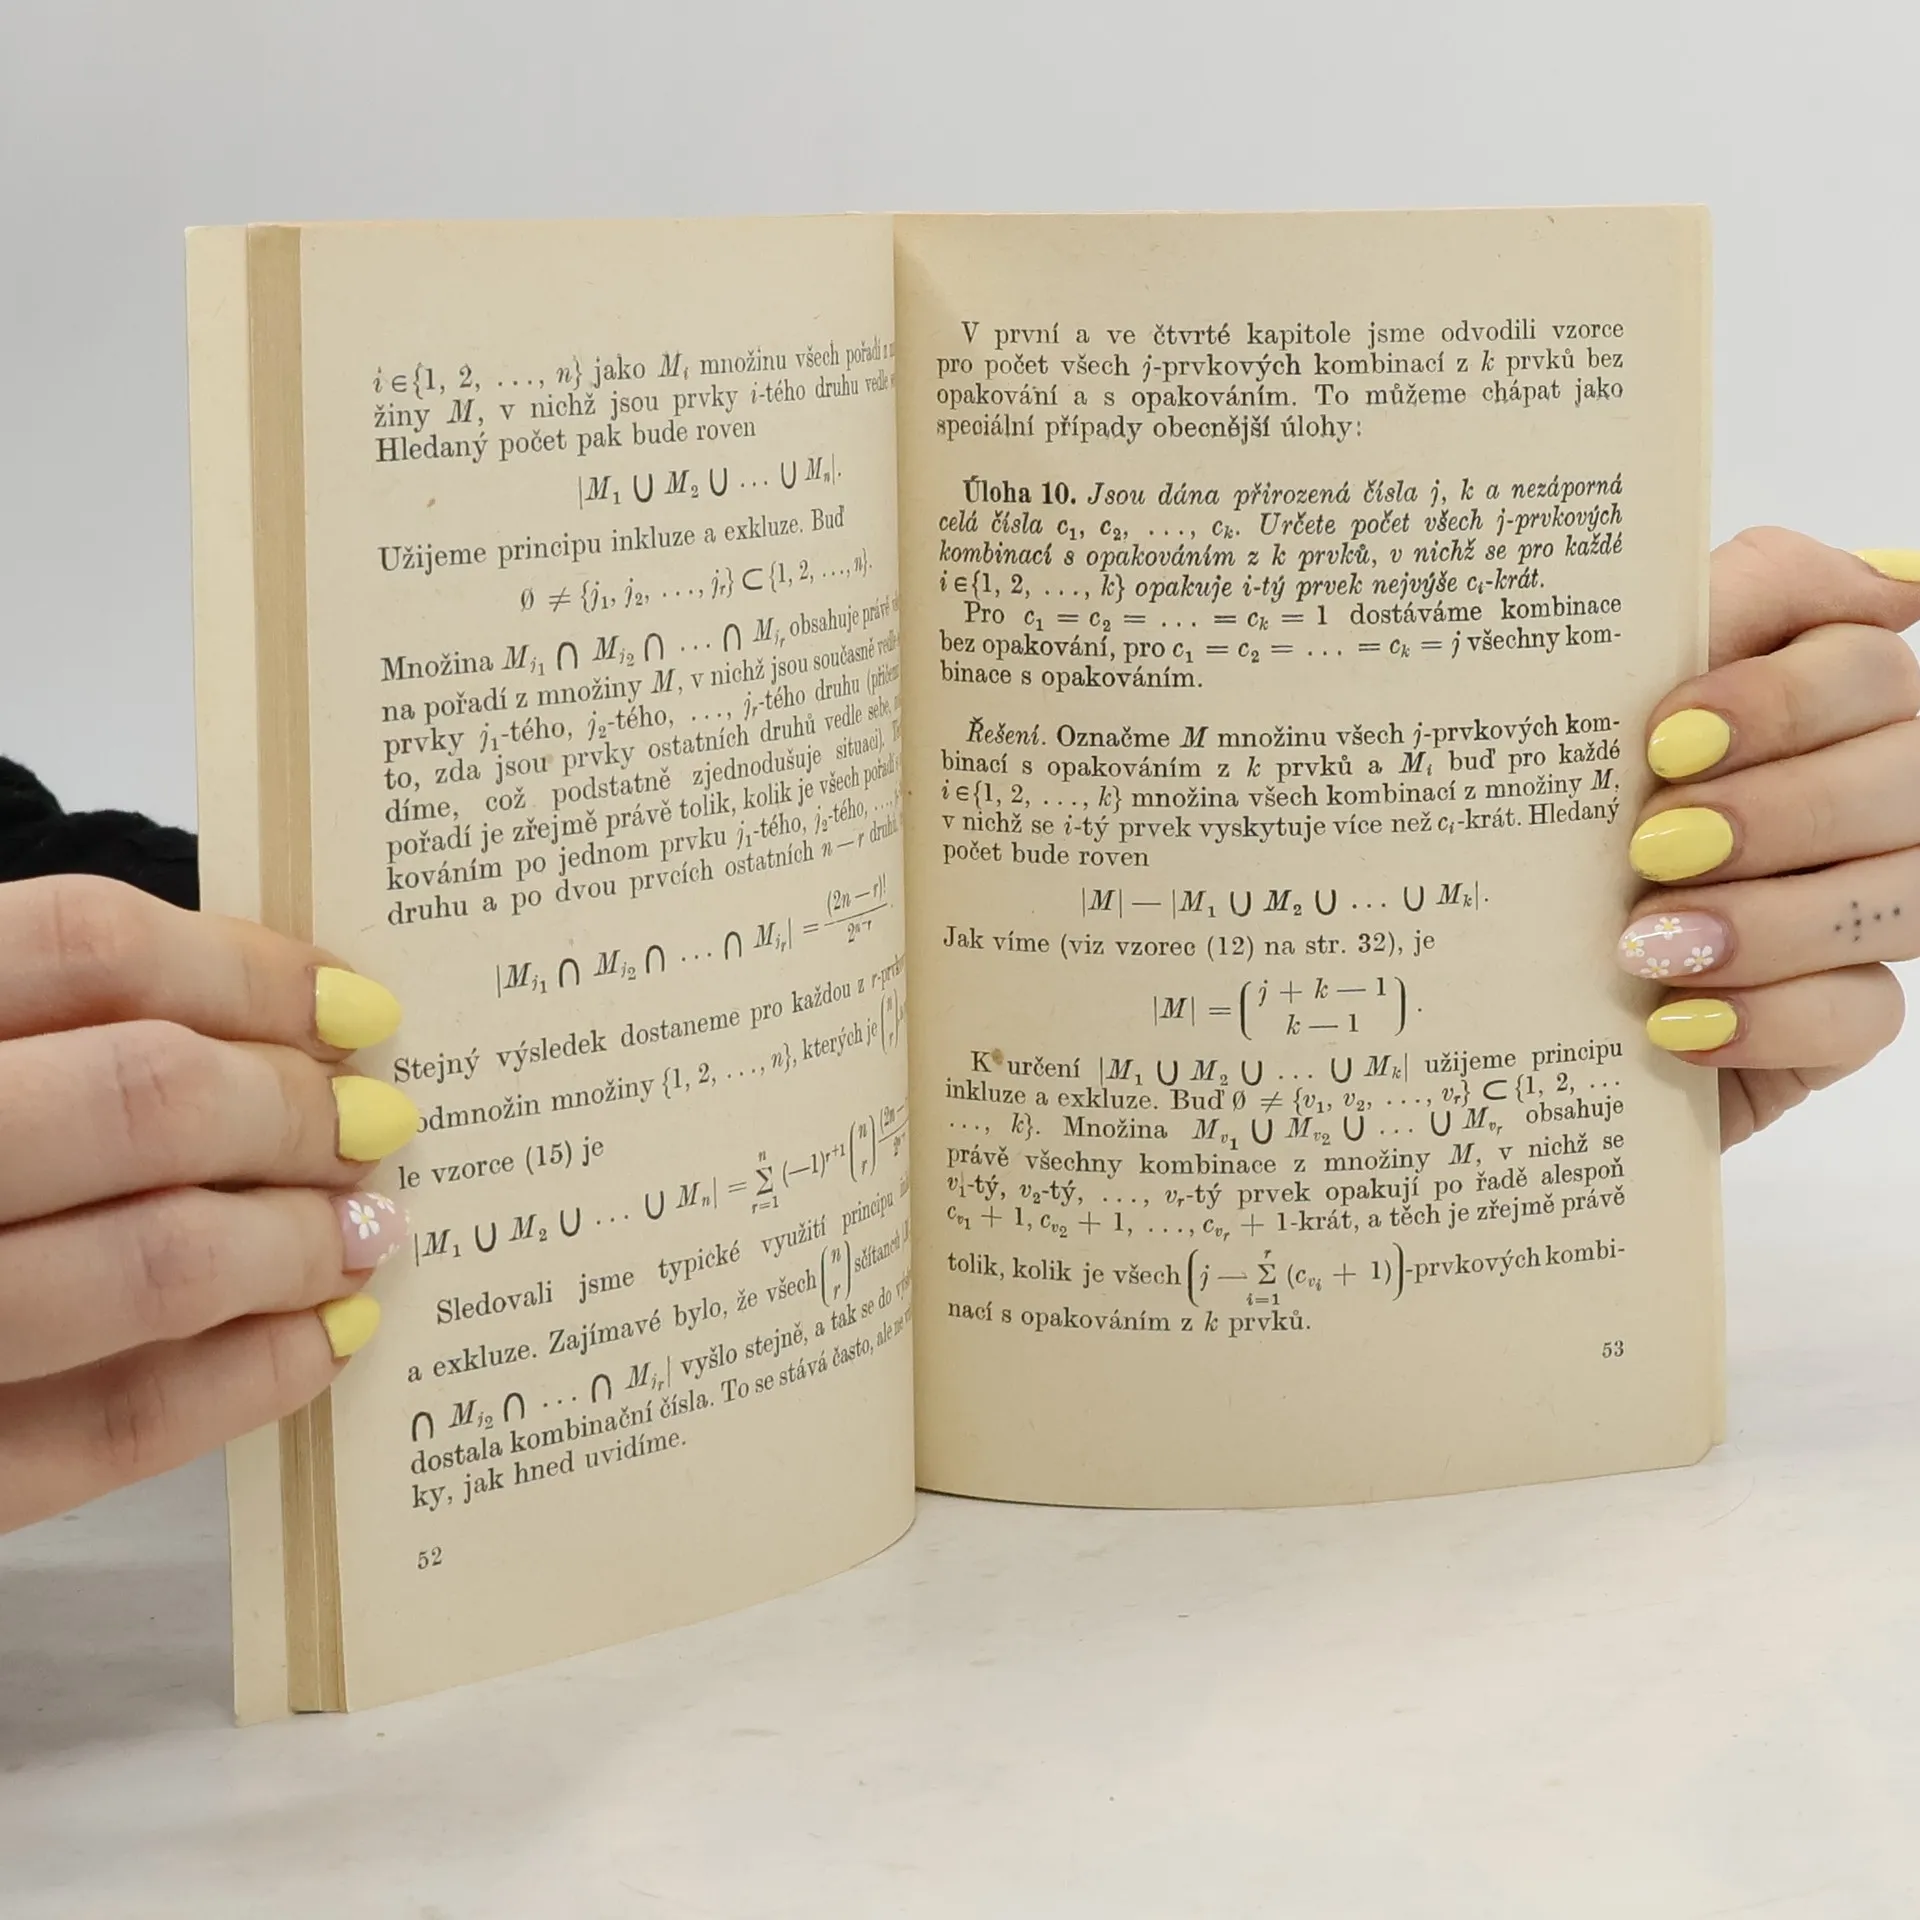 i ∈ {1, 2, ..., n} jako Mᵢ množinu všech pořadí
žiny M, v nichž jsou prvky i-tého druhu vedle
Hledaný počet pak bude roven
|M₁ ∪ M₂ ∪ ... ∪ Mₙ|.
Užijeme principu inkluze a exkluze. Buď
∅ ≠ {j₁, j₂, ..., jᵣ} ⊂ {1, 2, ..., n}.
Množina M_{j₁} ∩ M_{j₂} ∩ ... ∩ M_{jᵣ} obsahuje právě
na pořadí z množiny M, v nichž jsou současně vedle
prvky j₁-tého, j₂-tého, ..., jᵣ-tého druhu
to, zda jsou prvky ostatních druhů vedle sebe,
díme, což podstatně zjednodušuje situaci).
pořadí je zřejmě právě tolik, kolik je všech pořadí
kováním po jednom prvku j₁-tého, j₂-tého, ...,
druhu a po dvou prvcích ostatních n — r druhů
|M_{j₁} ∩ M_{j₂} ∩ ... ∩ M_{jᵣ}| = (2n — r)! / 2ⁿ⁻ʳ.
Stejný výsledek dostaneme pro každou z
odmnožin množiny {1, 2, ..., n}, kterých je (n r)
le vzorce (15) je
|M₁ ∪ M₂ ∪ ... ∪ Mₙ| = Σ_{r=1}^{n} (—1)ʳ⁺¹ (n r)
Sledovali jsme typické využití principu
a exkluze. Zajímavé bylo, že všech (n r) sčítanců
∩ M_{j₂} ∩ ... ∩ M_{jᵣ}| vyšlo stejně, a tak se do
dostala kombinační čísla. To se stává často, ale ne
ky, jak hned uvidíme.
52
V první a ve čtvrté kapitole jsme odvodili vzorce
pro počet všech j-prvkových kombinací z k prvků bez
opakování a s opakováním. To můžeme chápat jako
speciální případy obecnější úlohy:
Úloha 10. Jsou dána přirozená čísla j, k a nezáporná
celá čísla c₁, c₂, ..., cₖ. Určete počet všech j-prvkových
kombinací s opakováním z k prvků, v nichž se pro každé
i ∈ {1, 2, ..., k} opakuje i-tý prvek nejvýše cᵢ-krát.
Pro c₁ = c₂ = ... = cₖ = 1 dostáváme kombinace
bez opakování, pro c₁ = c₂ = ... = cₖ = j všechny kom-
binace s opakováním.
Řešení. Označme M množinu všech j-prvkových kom-
binací s opakováním z k prvků a Mᵢ buď pro každé
i ∈ {1, 2, ..., k} množina všech kombinací z množiny M,
v nichž se i-tý prvek vyskytuje více než cᵢ-krát. Hledaný
počet bude roven
|M| — |M₁ ∪ M₂ ∪ ... ∪ Mₖ|.
Jak víme (viz vzorec (12) na str. 32), je
|M| = (j + k — 1 k — 1).
K určení |M₁ ∪ M₂ ∪ ... ∪ Mₖ| užijeme principu
inkluze a exkluze. Buď ∅ ≠ {v₁, v₂, ..., vᵣ} ⊂ {1, 2, ...
..., k}. Množina M_{v₁} ∪ M_{v₂} ∪ ... ∪ M_{vᵣ} obsahuje
právě všechny kombinace z množiny M, v nichž se
v₁-tý, v₂-tý, ..., vᵣ-tý prvek opakují po řadě alespoň
c_{v₁} + 1, c_{v₂} + 1, ..., c_{vᵣ} + 1-krát, a těch je zřejmě právě
tolik, kolik je všech (j — Σ_{i=1}^{r} (c_{vᵢ} + 1))-prvkových kombi-
nací s opakováním z k prvků.
53